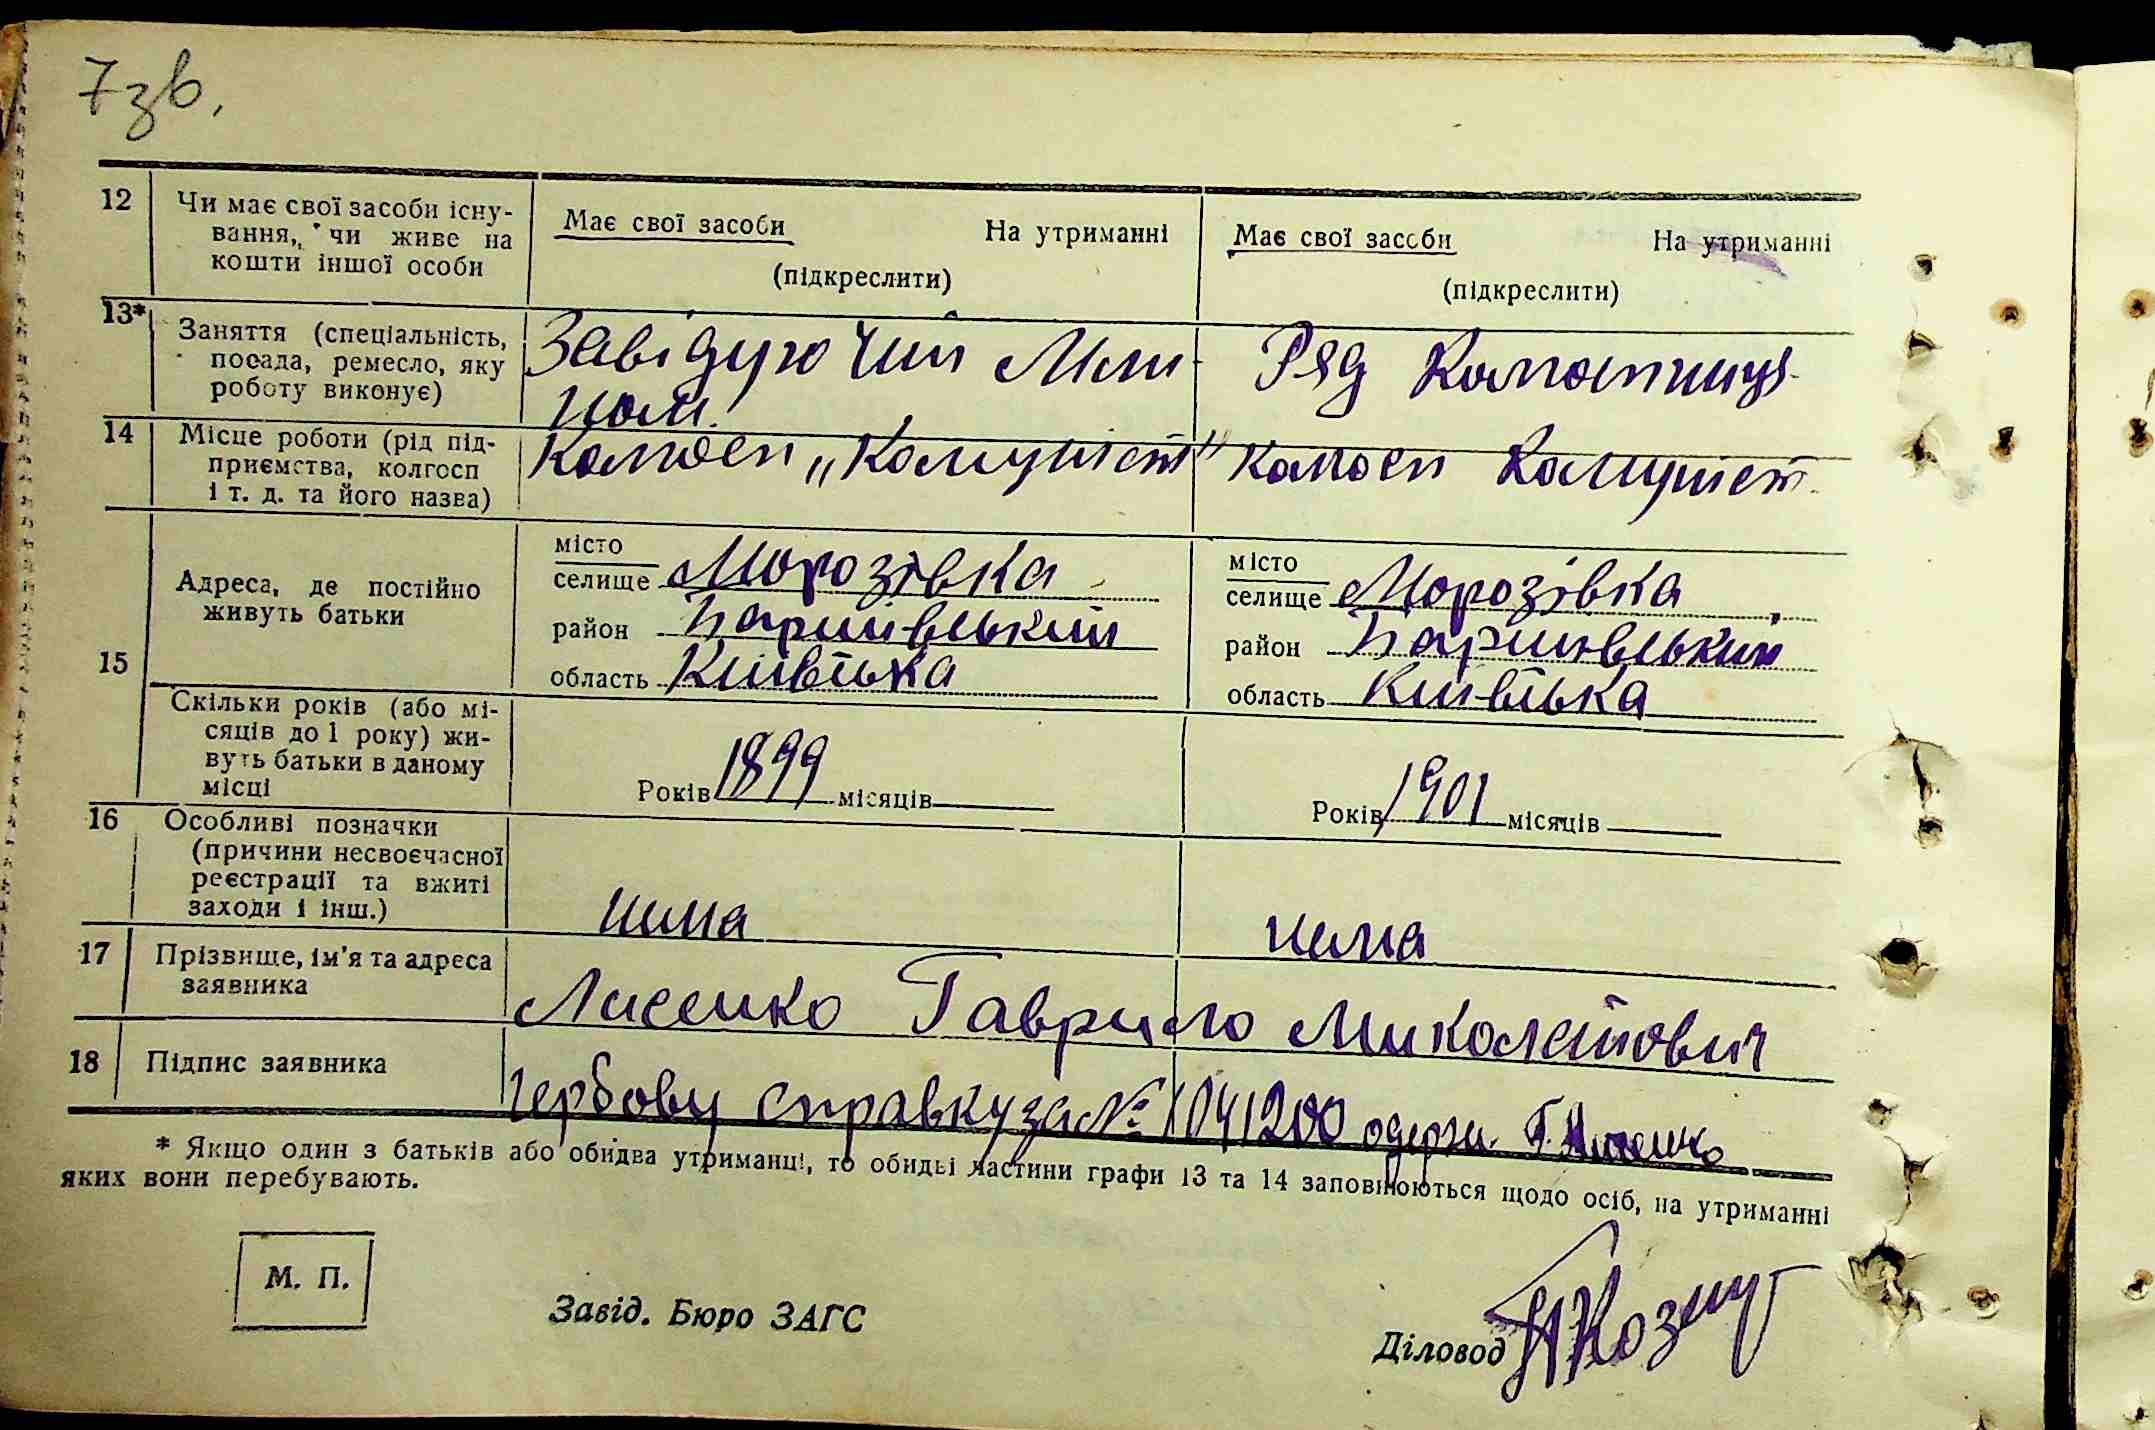 7 зв.
12 Чи має свої засоби існу-
вання, чи живе на
кошти іншої особи
Має свої засоби На утриманні
(підкреслити)
Має свої засоби На утриманні
(підкреслити)
13* Заняття (спеціальність,
посада, ремесло, яку
роботу виконує)
Завідуючий Мли-
ном.
Ряд Колгоспниця
14 Місце роботи (рід під-
приємства, колгосп
і т. д. та його назва)
Колгосп „Комуніст"
Колгосп Комуніст
15 Адреса, де постійно
живуть батьки
місто
селище Морозівка
район Баришівський
область Київська
місто
селище Морозівка
район Баришівський
область Київська
Скільки років (або мі-
сяців до 1 року) жи-
вуть батьки в даному
місці
Років 1899 місяців
Років 1901 місяців
16 Особливі позначки
(причини несвоєчасної
реєстрації та вжиті
заходи і інш.)
нима
нима
17 Прізвище, ім'я та адреса
заявника
Лисенко Гаврило Миколайович
18 Підпис заявника
гербову справку за № 1041200 одержи. Г. Лисенко
* Якщо один з батьків або обидва утриманці, то обидві частини графи 13 та 14 заповнюються щодо осіб, на утриманні
яких вони перебувають.
М. П.
Завід. Бюро ЗАГС
Діловод